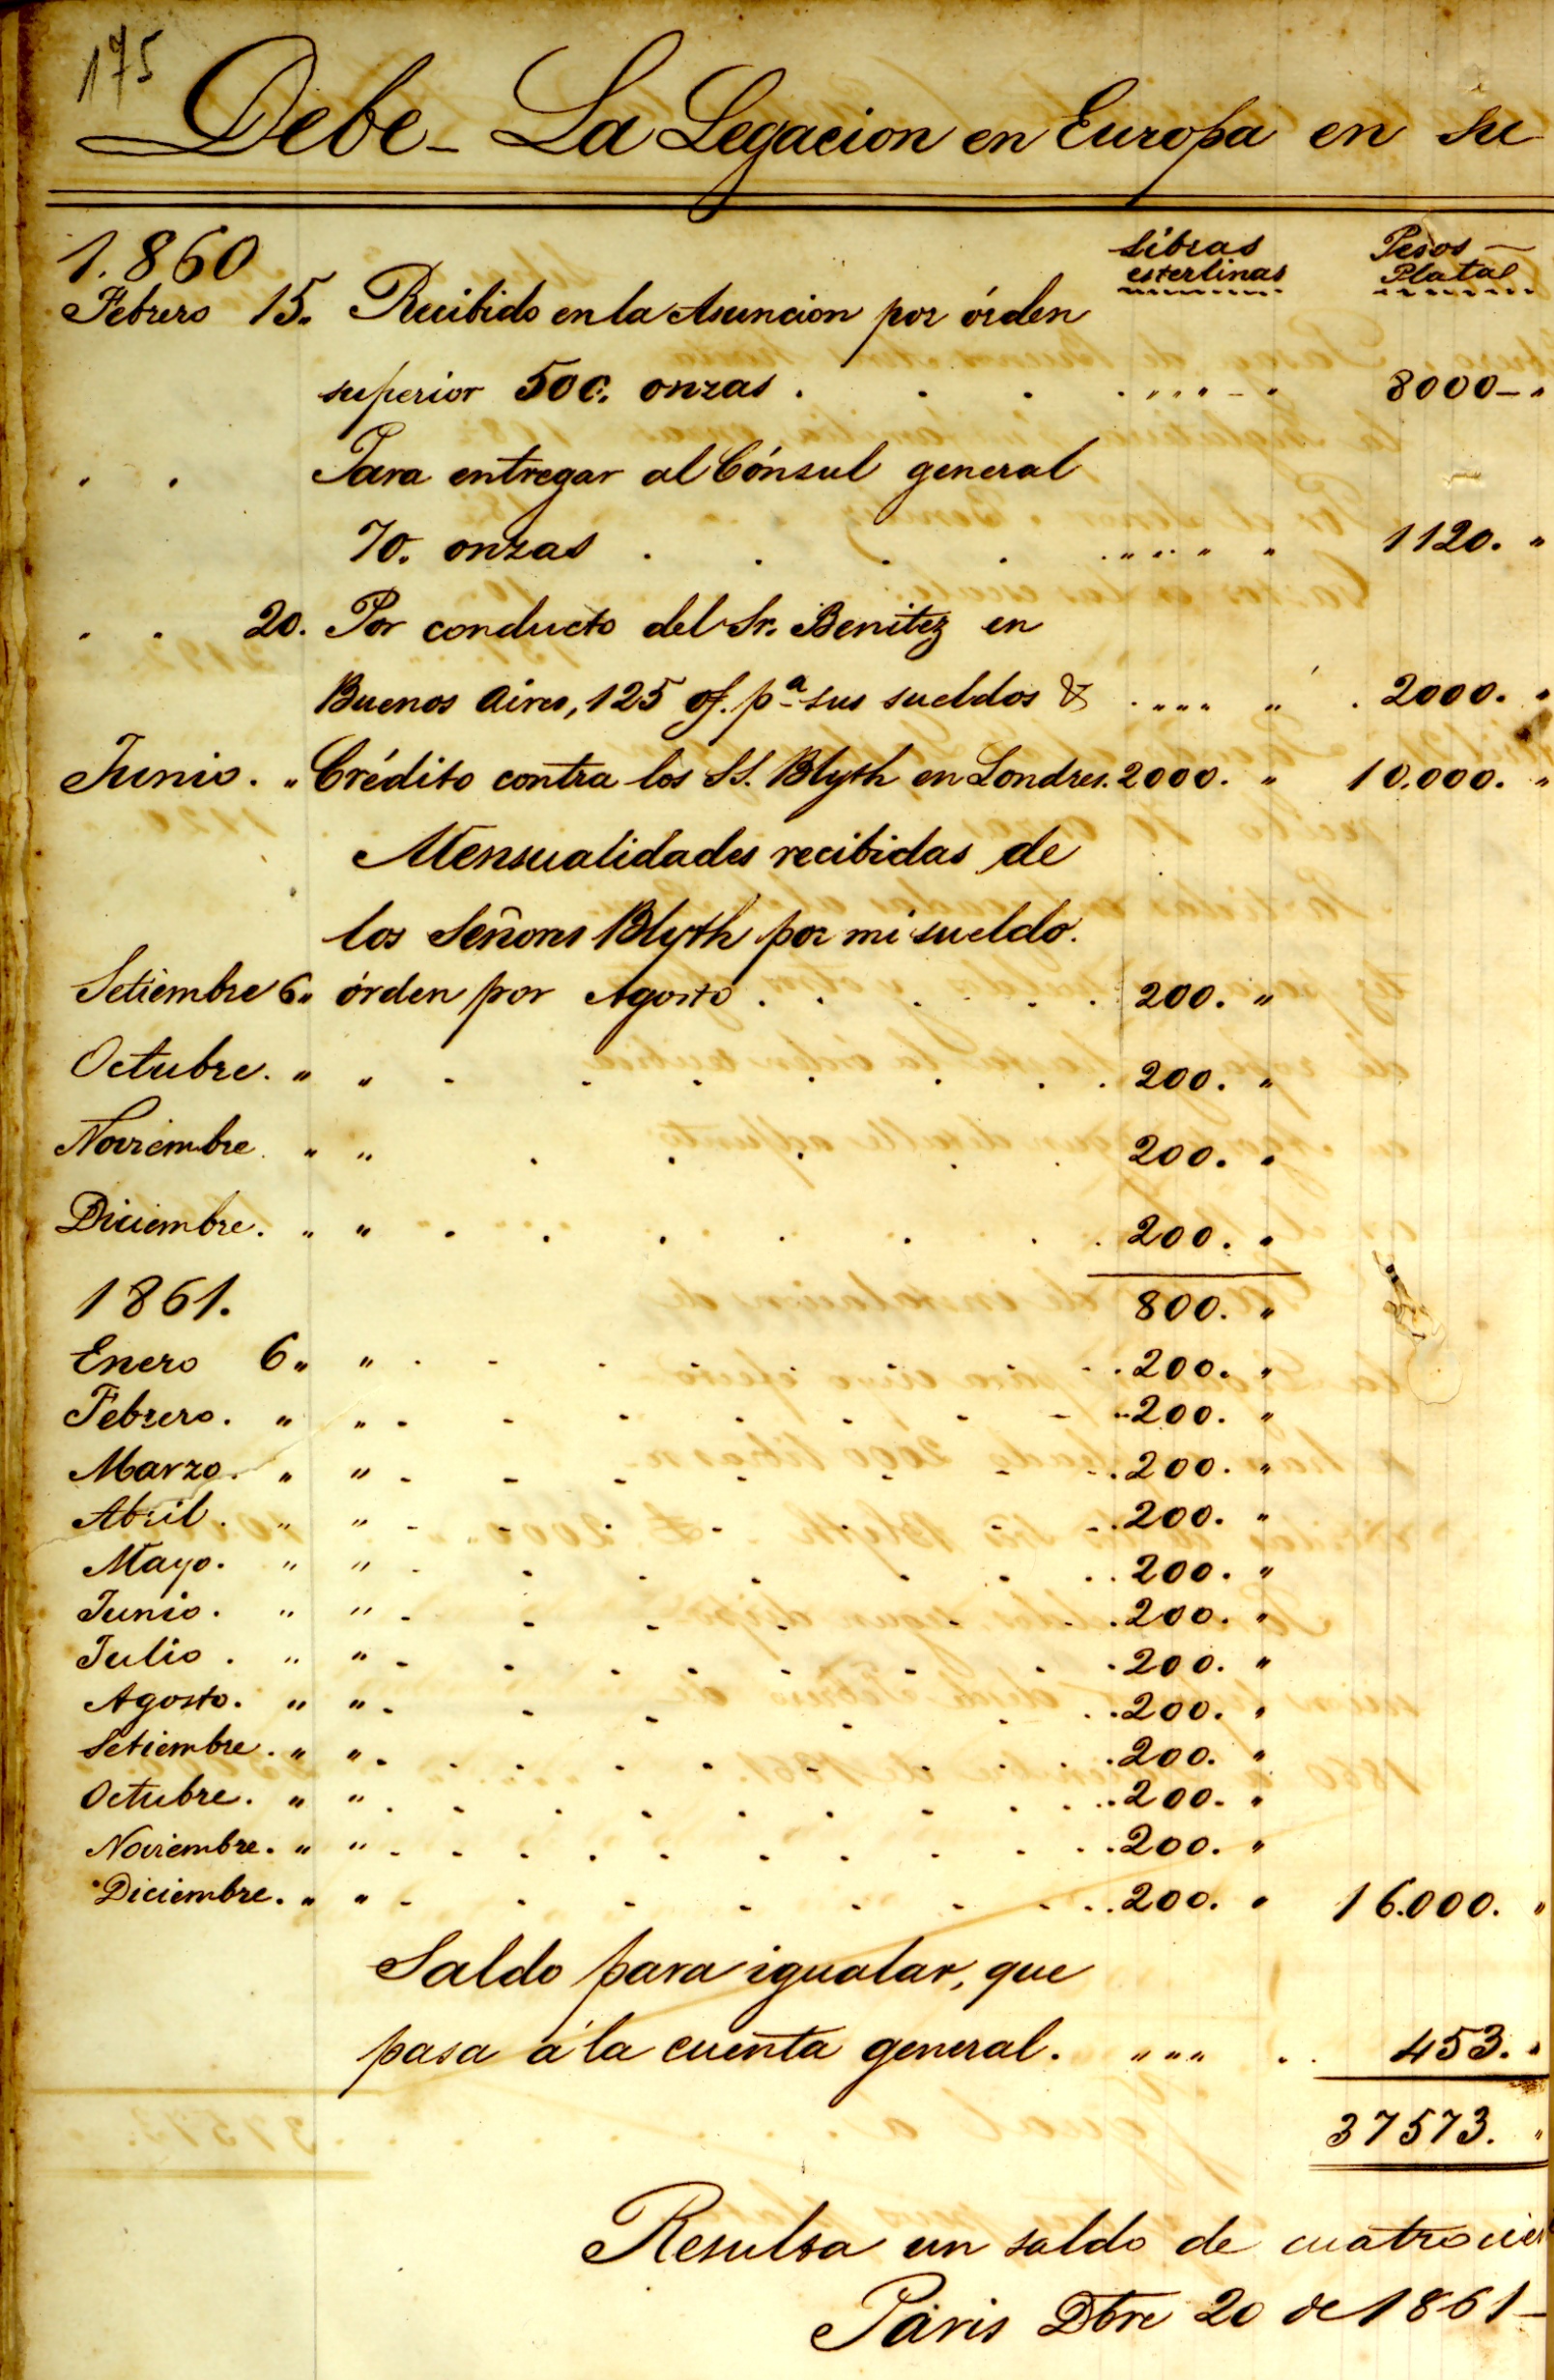 175
Debe - La Legacion en Europa en su
1.860
Libras esterlinas
Pesos Plata
Febrero 15. Recibido en la Asuncion por órden
superior 500. onzas . . . . " " " - " 8000 - "
" " Para entregar al Cónsul general
70. onzas . . . . " " " " " 1120. "
" " 20. Por conducto del Sr. Benitez en
Buenos Aires, 125 of. pª sus sueldos & . " " " " . 2000. "
Junio. " Crédito contra los SS. Blyth en Londres. 2000. " 10.000. "
Mensualidades recibidas de
los Señores Blyth por mi sueldo.
Setiembre 6 " órden por Agosto . . . . 200. "
Octubre. " " - . . . . . 200. "
Noviembre. " " . . . . . 200. "
Diciembre. " " . . . . . 200. "
1861. 800. "
Enero 6 " " . . . . . 200. "
Febrero. " " - - . . . . 200. "
Marzo. " " - - . . . . 200. "
Abril. " " - - . . . . 200. "
Mayo. " " - - . . . . 200. "
Junio. " " - - . . . . 200. "
Julio. " " - - . . . . 200. "
Agosto. " " - - . . . . 200. "
Setiembre. " " - . . . . . 200. "
Octubre. " " . . . . . . 200. "
Noviembre. " " - . . . . . 200. "
Diciembre. " " - . . . . . 200. " 16.000. "
Saldo para igualar, que
pasa á la cuenta general. " " " . . 453. "
37573. "
Resulta un saldo de cuatrocien
Paris Dbre 20 de 1861 -